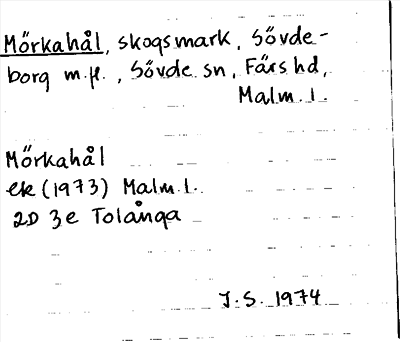 Mörkahål, skogsmark, Sövde-
borg m.fl., Sövde sn, Färs hd,
Malm.l.
Mörkahål
ek (1973) Malm.l.
2D 3e Tolånga
J.S. 1974